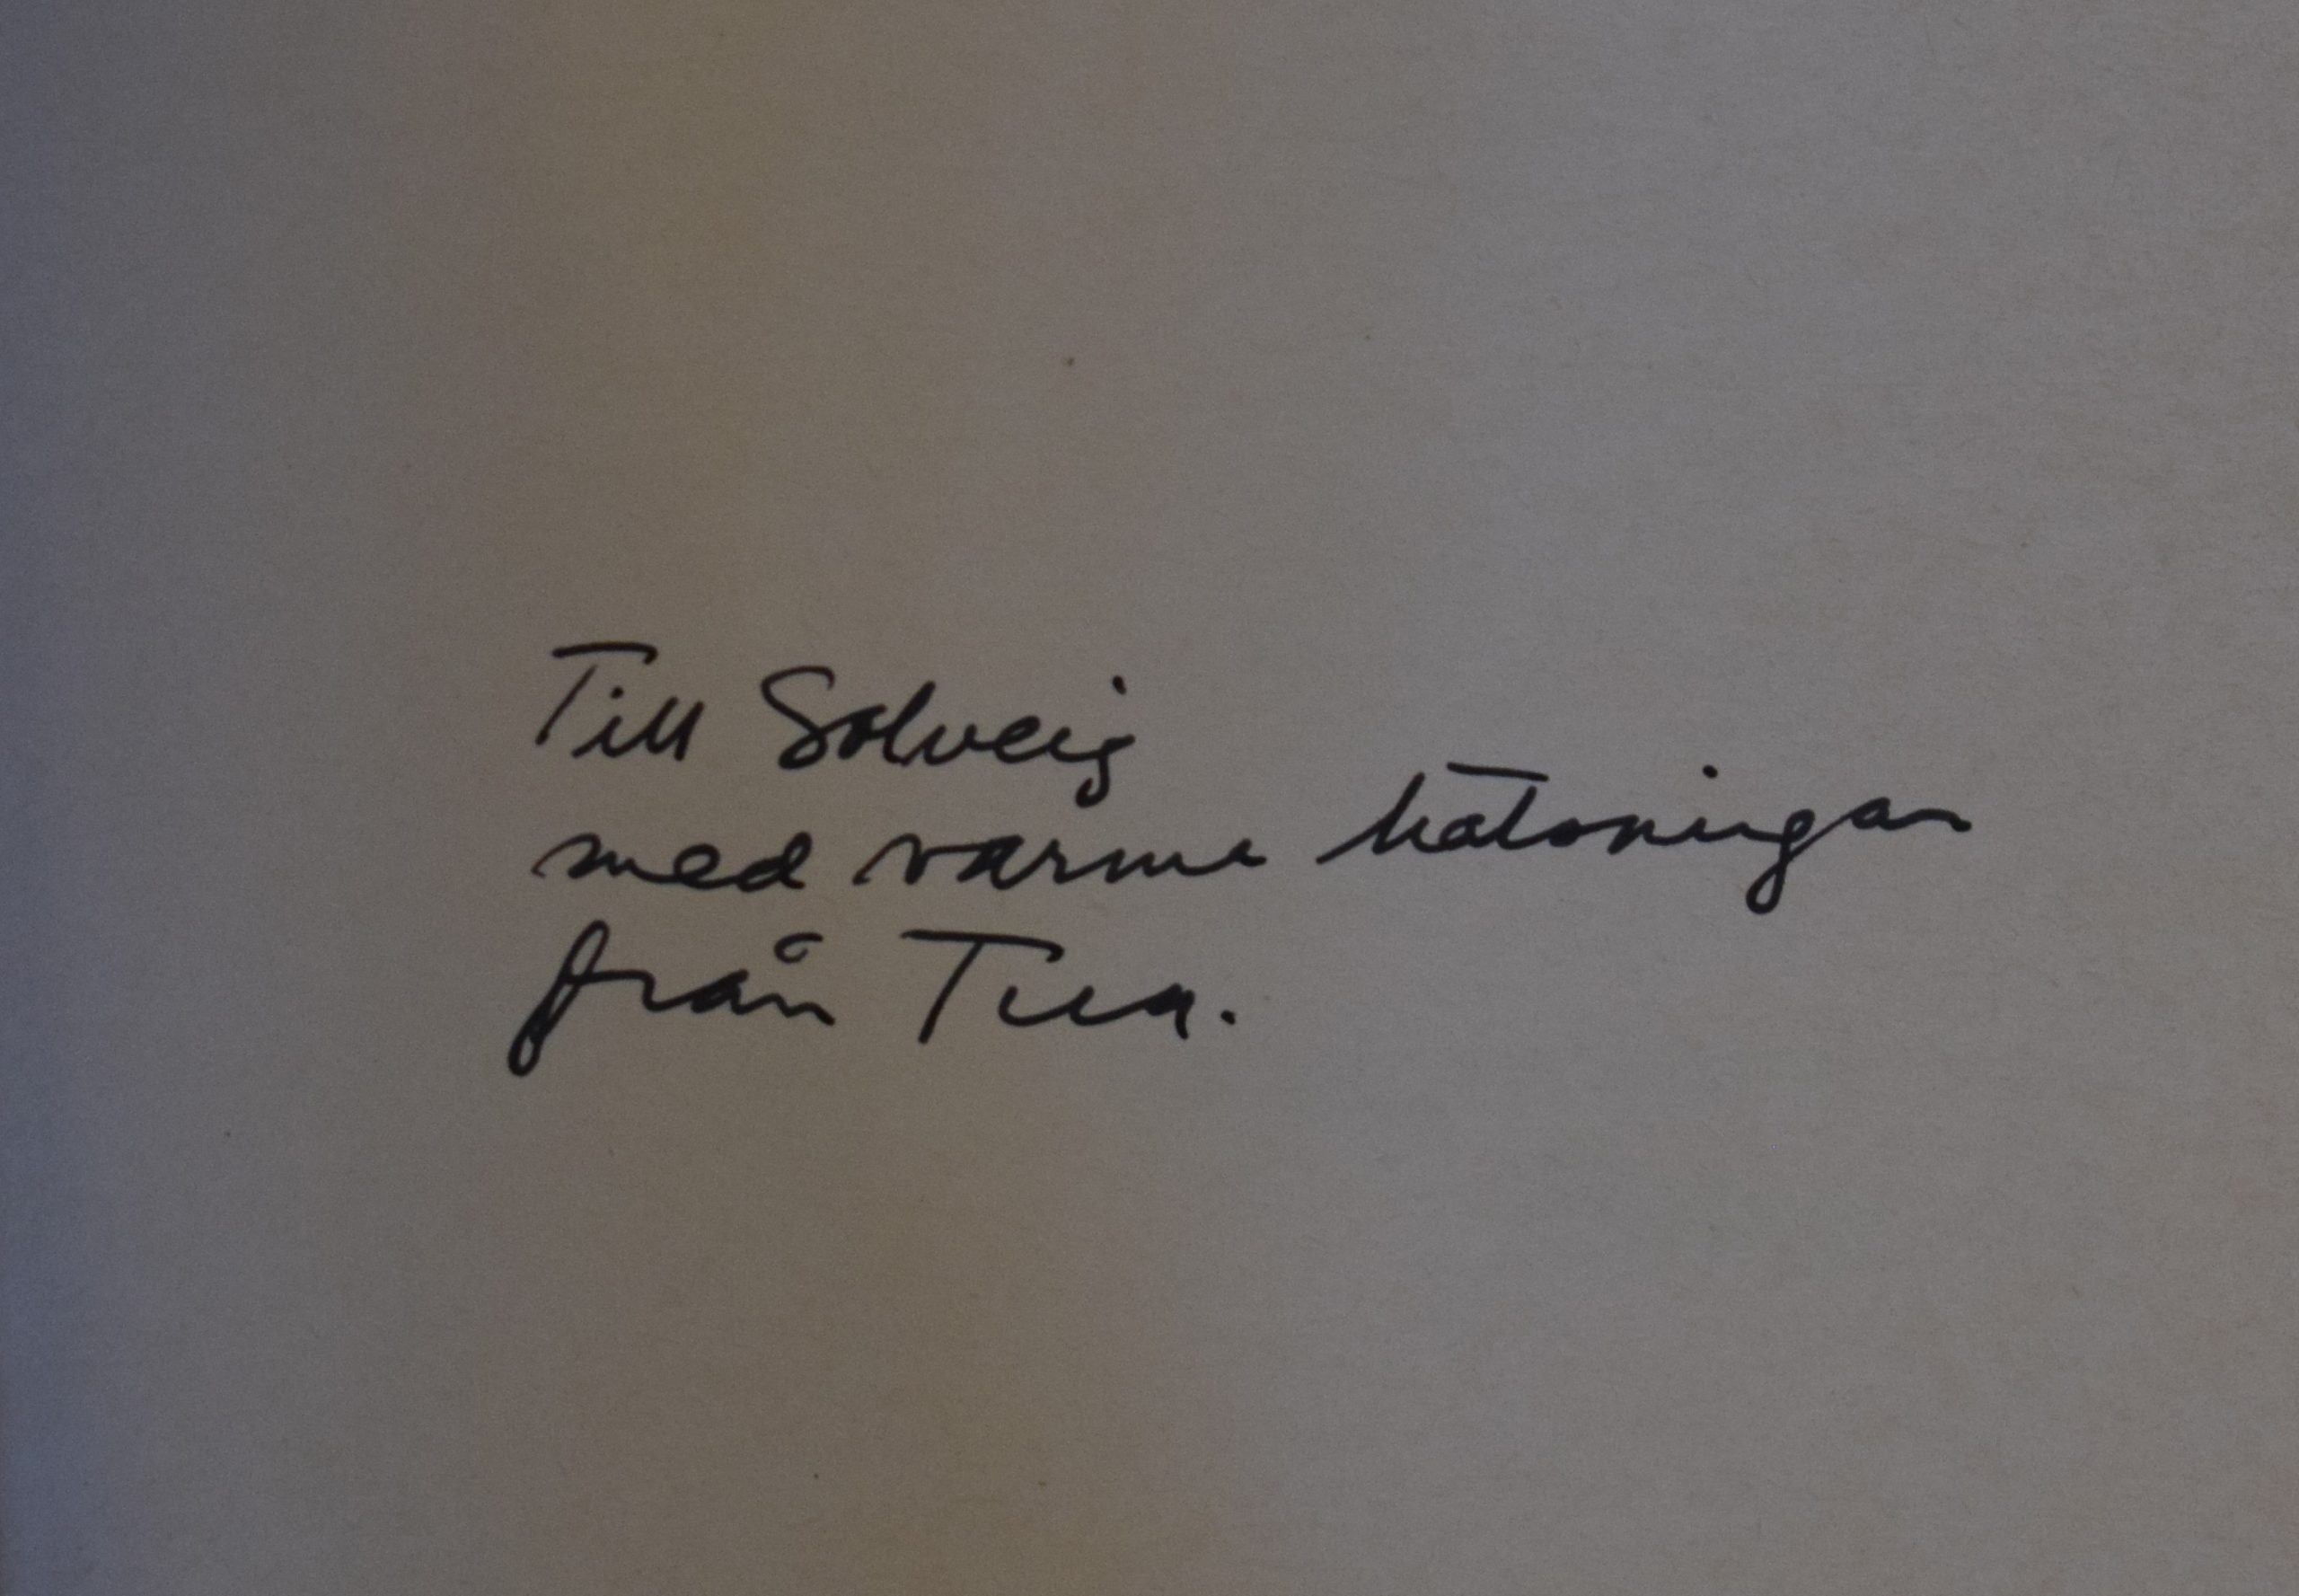 Till Solveig
med varma hälsningar
från Tua.